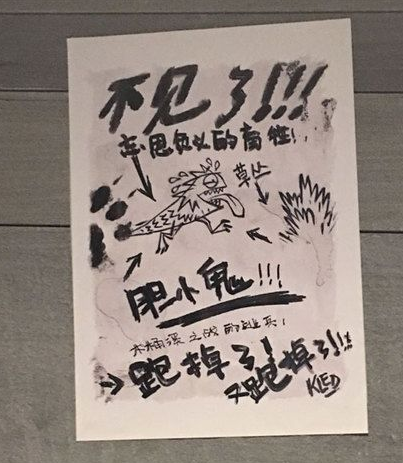 不见了!!!
忘恩负义的畜牲!
草丛
胆小鬼!!!
之战的逃兵!
跑掉了!
又跑掉了!!!
KLED